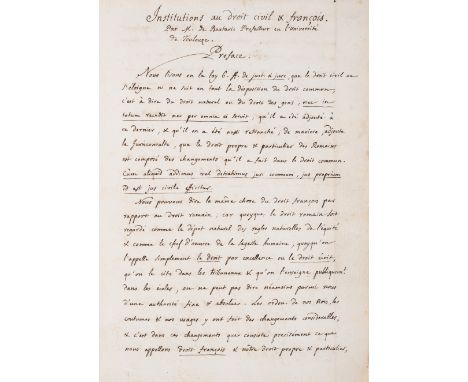 Institutions au droit civil & françois.
Par M. de Boutaric Professeur en l'université
de Toulouze.
Preface.
Nous lisons en la loy 6. ff. de just. & jure, que le droit civil ne
s'eloigne ni ne suit en tout la disposition du droit commun,
c'est à dire du droit naturel ou du droit des gens, nec in
totum recedit nec per omnia ei servit, qu'il a été adjouté à
ce dernier, & qu'il en a été aussi retranché, de maniere, adjoute
le Jurisconsulte, que le droit propre & particulier des Romains
est composé des changements qu'il a fait dans le droit commun.
Cùm aliquid addimus vel detrahimus juri communi, jus proprium
id est jus civile efficitur.
Nous pouvons dire la même chose du droit françois par
rapport au droit romain; car quoyque le droit romain soit
regardé comme le dépot naturel des regles naturelles de l'équité
& comme le chef d'œuvre de la sagesse humaine, quoyqu'on
l'appelle simplement le droit par excellence ou le droit écrit,
qu'on le cite dans les tribunaux & qu'on l'enseigne publiquem.t
dans les écoles, on ne peut pas dire néanmoins parmi nous
d'une authorité fixe & absolue. Les orden. de nos Rois, les
coutumes & nos usages y ont fait des changements considerables,
& c'est dans ces changements que consiste precisement ce que
nous appellons droit françois & nôtre droit propre & particulier,